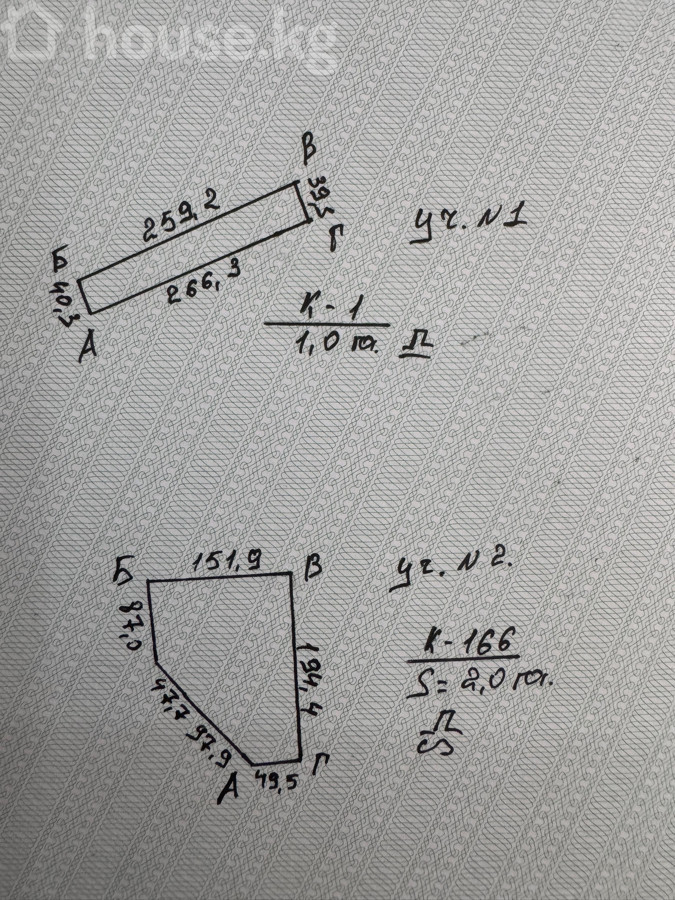 house.kg
В
259,2
39,5
Б
Г
уч. N1
40,3
266,3
А
К-1
1,0 га. П
Б
151,9
В
уч. N2.
87,0
194,4
К-166
S=2,0 га.
47,7 97,9
П
А
49,5
Г